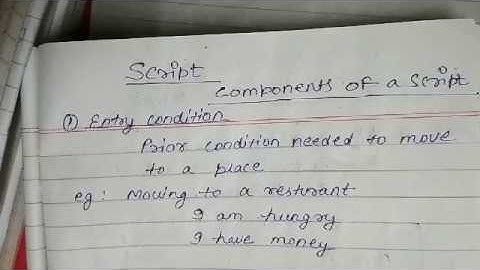 Script
components of a script.
① Entry condition
Prior condition needed to move
to a place
eg: Moving to a resturant
I am hungry
I have money